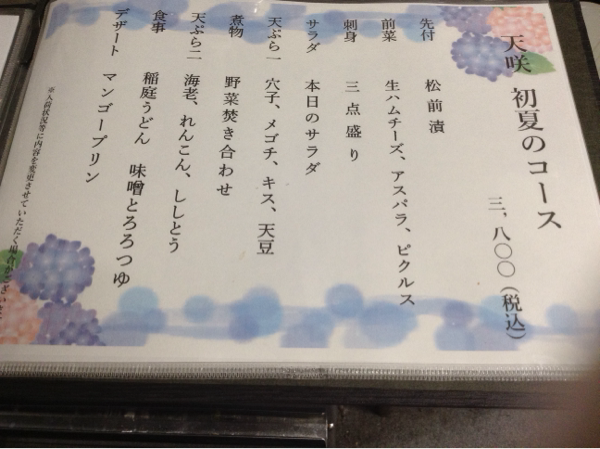 天咲 初夏のコース
三,八〇〇(税込)
先付 松前漬
前菜 生ハムチーズ、アスパラ、ピクルス
刺身 三点盛り
サラダ 本日のサラダ
天ぷら一 穴子、メゴチ、キス、天豆
煮物 野菜焚き合わせ
天ぷら二 海老、れんこん、ししとう
食事 稲庭うどん 味噌とろろつゆ
デザート マンゴープリン
※入荷状況等に内容を変更させていただく場合がございま